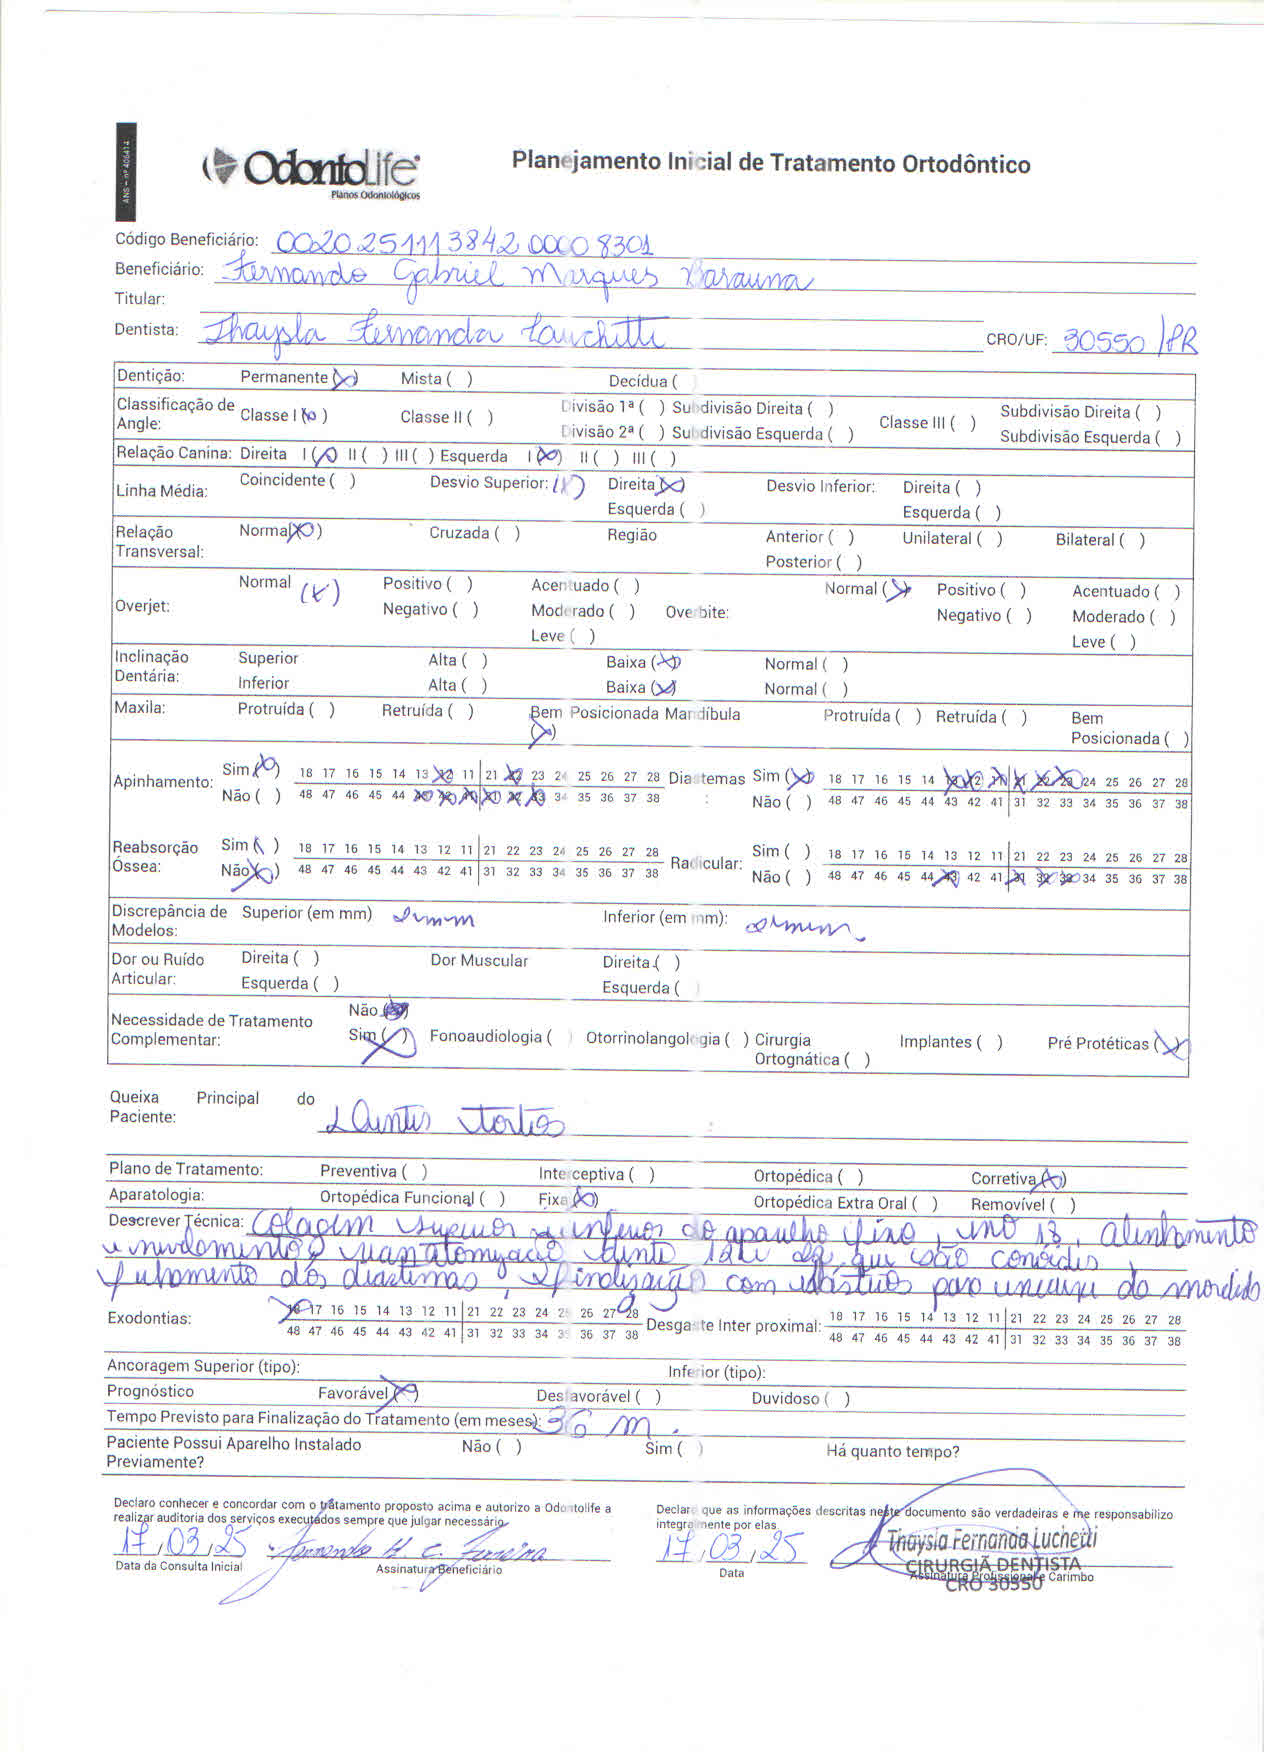 ANS - nº 406414
OdontoLife
Planos Odontológicos
Planejamento Inicial de Tratamento Ortodôntico
Código Beneficiário: 002025111384200008301
Beneficiário: Fernando Gabriel Marques Barauna
Titular:
Dentista: Thaysla Fernanda Luchetti CRO/UF: 30550/PR
Dentição: Permanente (X) Mista ( ) Decídua (
Classificação de Angle: Classe I (X) Classe II ( ) Divisão 1ª ( ) Subdivisão Direita ( ) Classe III ( ) Subdivisão Direita ( )
Divisão 2ª ( ) Subdivisão Esquerda ( ) Subdivisão Esquerda ( )
Relação Canina: Direita I (X) II ( ) III ( ) Esquerda I (X) II ( ) III ( )
Linha Média: Coincidente ( ) Desvio Superior: (X) Direita (X) Desvio Inferior: Direita ( )
Esquerda ( ) Esquerda ( )
Relação Transversal: Normal (X) Cruzada ( ) Região Anterior ( ) Unilateral ( ) Bilateral ( )
Posterior ( )
Overjet: Normal (X) Positivo ( ) Acentuado ( ) Overbite: Normal (X) Positivo ( ) Acentuado ( )
Negativo ( ) Moderado ( ) Negativo ( ) Moderado ( )
Leve ( ) Leve ( )
Inclinação Dentária: Superior Alta ( ) Baixa (X) Normal ( )
Inferior Alta ( ) Baixa (X) Normal ( )
Maxila: Protruída ( ) Retruída ( ) Bem Posicionada (X) Mandíbula Protruída ( ) Retruída ( ) Bem Posicionada ( )
Apinhamento: Sim (X) 18 17 16 15 14 13 12 11 21 22 23 24 25 26 27 28 Diastemas: Sim (X) 18 17 16 15 14 13 12 11 21 22 23 24 25 26 27 28
Não ( ) 48 47 46 45 44 43 42 41 31 32 33 34 35 36 37 38 Não ( ) 48 47 46 45 44 43 42 41 31 32 33 34 35 36 37 38
Reabsorção Óssea: Sim ( ) 18 17 16 15 14 13 12 11 21 22 23 24 25 26 27 28 Radicular: Sim ( ) 18 17 16 15 14 13 12 11 21 22 23 24 25 26 27 28
Não (X) 48 47 46 45 44 43 42 41 31 32 33 34 35 36 37 38 Não ( ) 48 47 46 45 44 43 42 41 31 32 33 34 35 36 37 38
Discrepância de Modelos: Superior (em mm) 2mm Inferior (em mm): 2mm
Dor ou Ruído Articular: Direita ( ) Dor Muscular Direita ( )
Esquerda ( ) Esquerda (
Necessidade de Tratamento Complementar: Não
Sim (X) Fonoaudiologia ( ) Otorrinolangologia ( ) Cirurgia Ortognática ( ) Implantes ( ) Pré Protéticas (X)
Queixa Principal do Paciente: Dentes tortos
Plano de Tratamento: Preventiva ( ) Interceptiva ( ) Ortopédica ( ) Corretiva (X)
Aparatologia: Ortopédica Funcional ( ) Fixa (X) Ortopédica Extra Oral ( ) Removível ( )
Descrever Técnica: Colagem superior e inferior do aparelho fixo, alinhamento
e nivelamento, dente 12 e 22 que são conoides,
fechamento dos diastemas, finalização com elásticos para da mordida
Exodontias: 18 17 16 15 14 13 12 11 21 22 23 24 25 26 27 28 Desgaste Inter proximal: 18 17 16 15 14 13 12 11 21 22 23 24 25 26 27 28
48 47 46 45 44 43 42 41 31 32 33 34 35 36 37 38 48 47 46 45 44 43 42 41 31 32 33 34 35 36 37 38
Ancoragem Superior (tipo): Inferior (tipo):
Prognóstico Favorável (X) Desfavorável ( ) Duvidoso ( )
Tempo Previsto para Finalização do Tratamento (em meses): 36 m.
Paciente Possui Aparelho Instalado Previamente? Não ( ) Sim ( ) Há quanto tempo?
Declaro conhecer e concordar com o tratamento proposto acima e autorizo a Odontolife a
realizar auditoria dos serviços executados sempre que julgar necessário
Declaro que as informações descritas neste documento são verdadeiras e me responsabilizo
integralmente por elas
17,03,25
Data da Consulta Inicial
Assinatura Beneficiário
17,03,25
Data
Thaysla Fernanda Luchetti
CIRURGIÃ DENTISTA
Assinatura Profissional e Carimbo
CRO 30550